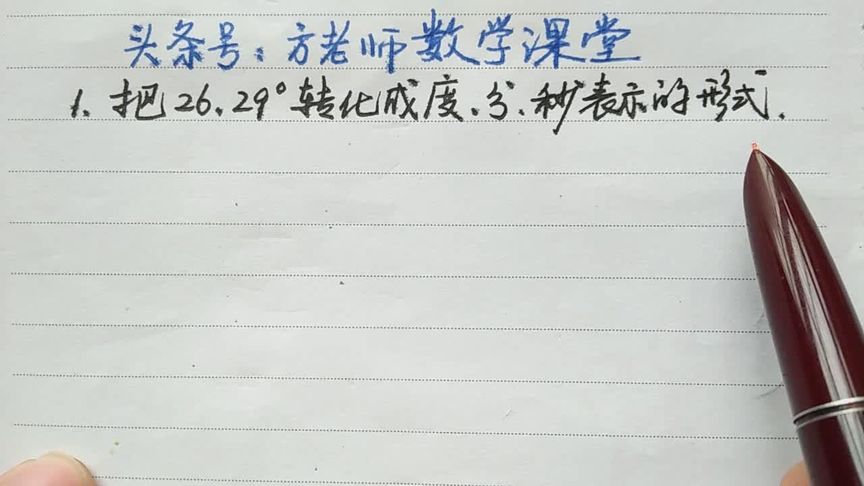 头条号：方老师数学课堂
1、把26.29°转化成度、分、秒表示的形式.